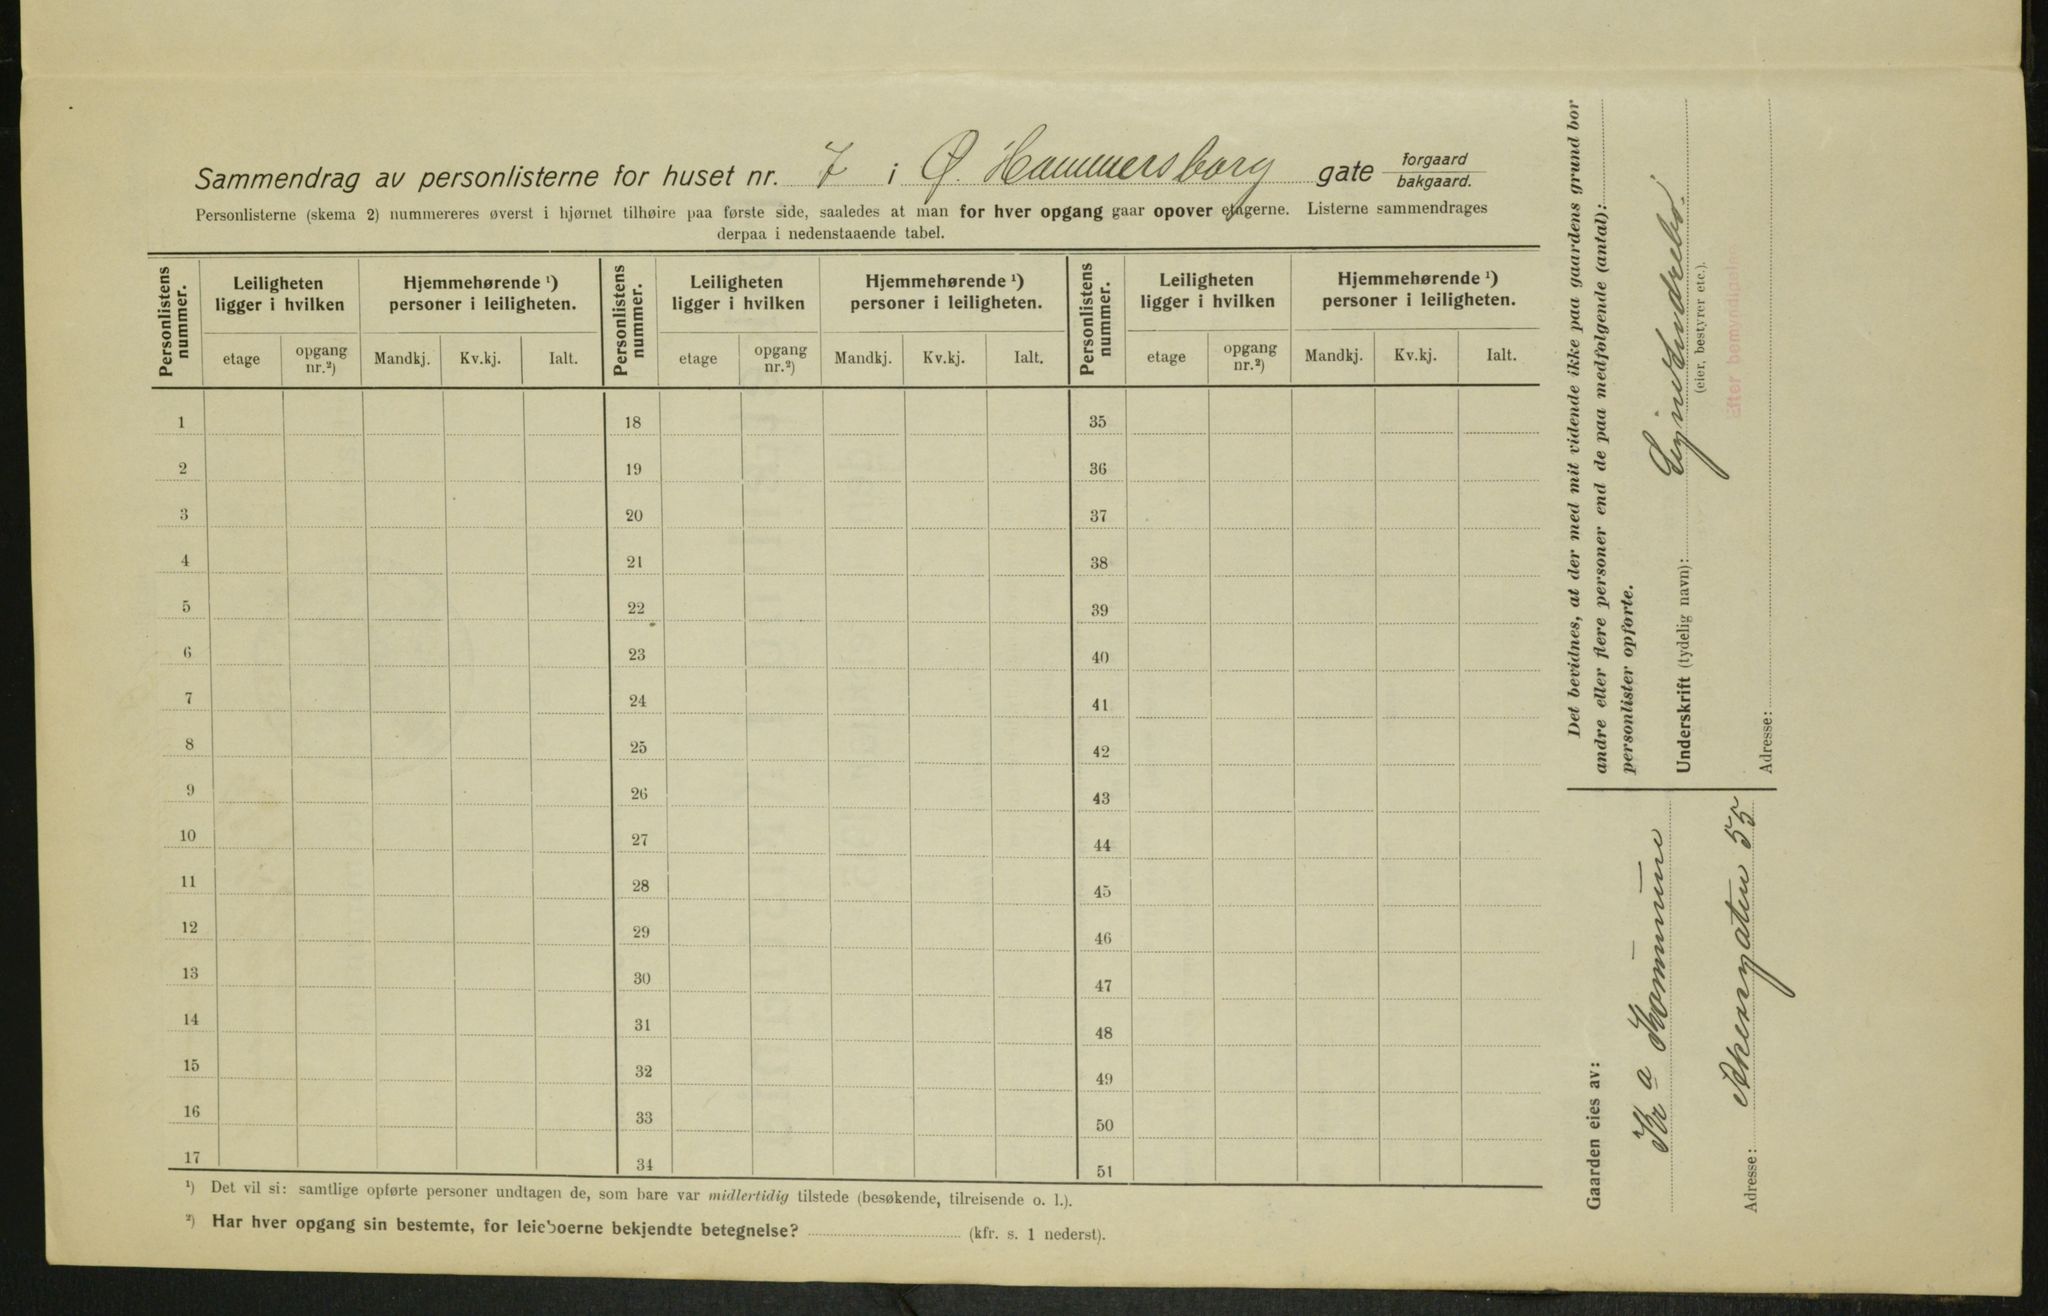 Sammendrag av personlisterne for huset nr. 7 i Ø. Hammersborg gate forgaard bakgaard.
Personlisterne (skema 2) nummereres øverst i hjørnet tilhøire paa første side, saaledes at man for hver opgang gaar opover etagerne. Listerne sammendrages
derpaa i nedenstaaende tabel.
Personlistens nummer. Leiligheten ligger i hvilken Hjemmehørende ¹) personer i leiligheten. Personlistens nummer. Leiligheten ligger i hvilken Hjemmehørende ¹) personer i leiligheten. Personlistens nummer. Leiligheten ligger i hvilken Hjemmehørende ¹) personer i leiligheten.
etage opgang nr.²) Mandkj. Kv.kj. Ialt. etage opgang nr.²) Mandkj. Kv.kj. Ialt. etage opgang nr.²) Mandkj. Kv.kj. Ialt.
1 18 35
2 19 36
3 20 37
4 21 38
5 22 39
6 23 40
7 24 41
8 25 42
9 26 43
10 27 44
11 28 45
12 29 46
13 30 47
14 31 48
15 32 49
16 33 50
17 34 51
¹) Det vil si: samtlige opførte personer undtagen de, som bare var midlertidig tilstede (besøkende, tilreisende o. l.).
²) Har hver opgang sin bestemte, for leieboerne bekjendte betegnelse? (kfr. s. 1 nederst).
Det bevidnes, at der med mit vidende ikke paa gaardens grund bor
andre eller flere personer end de paa medfølgende (antal):
personlister opførte.
Underskrift (tydelig navn):
(eier, bestyrer etc.).
efter bemyndigelse
Adresse:
Gaarden eies av:
Kr a Kommune
Adresse: Akersgaten 55